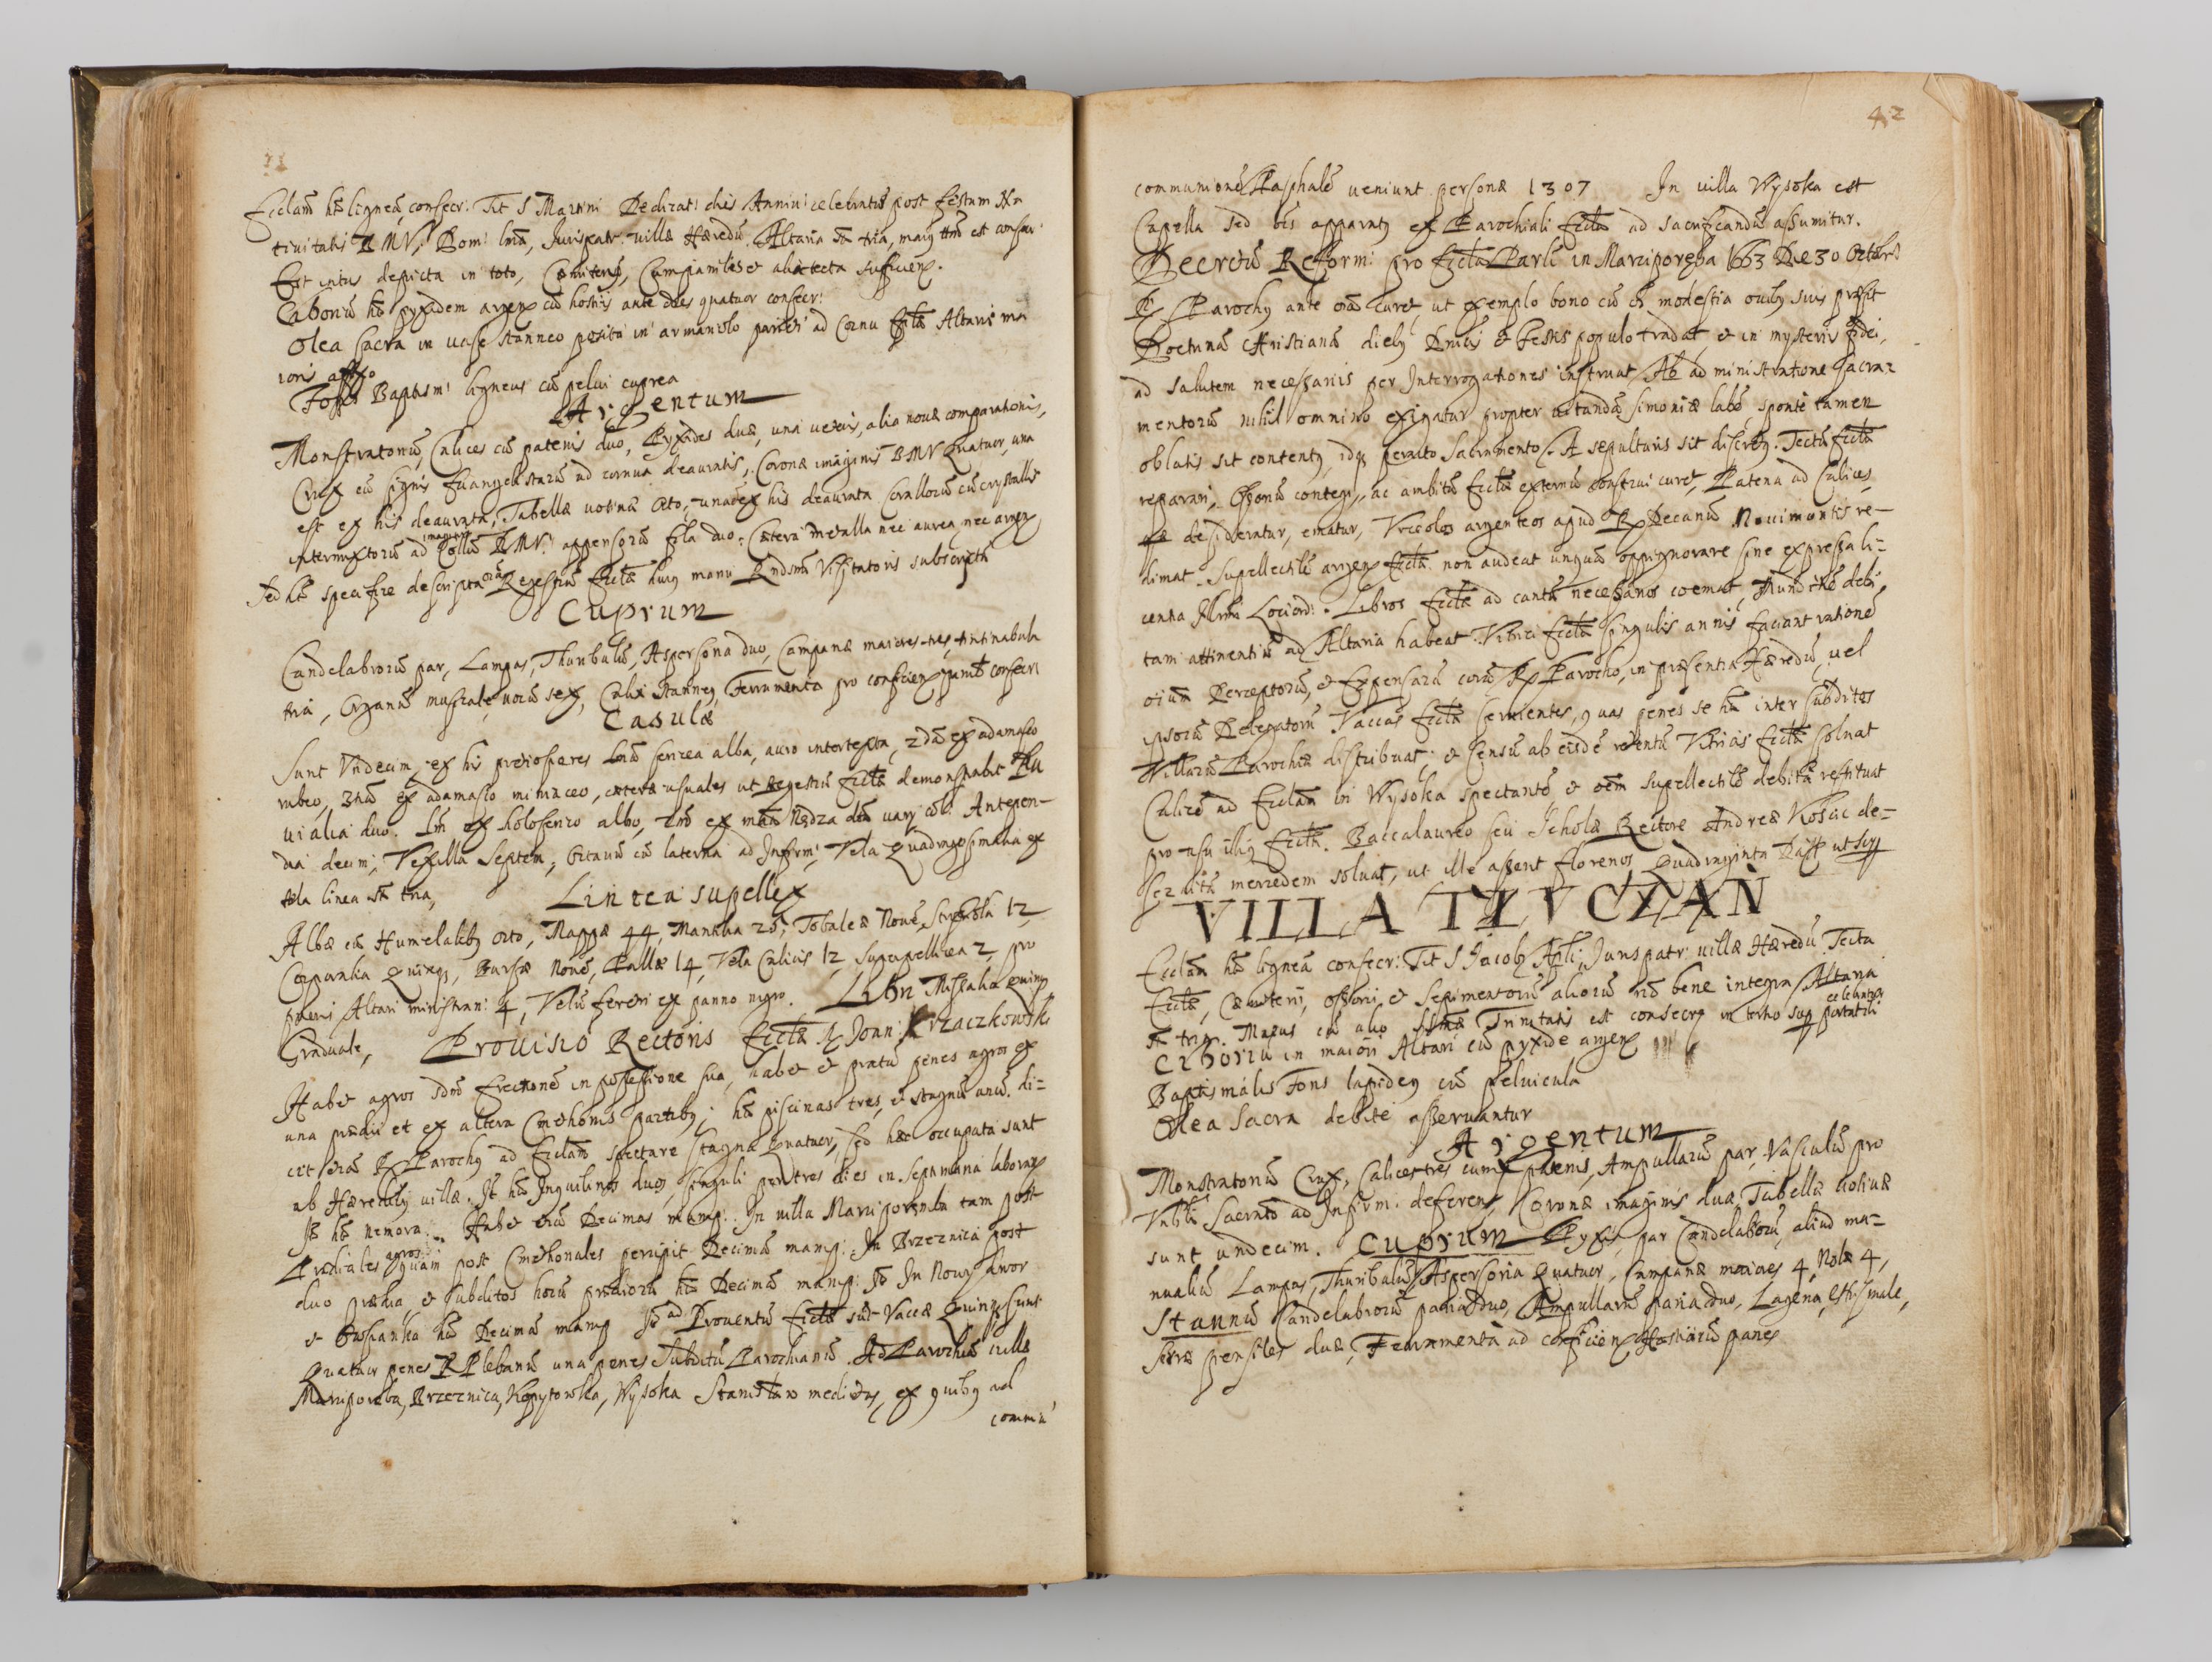 Ecclam hẽt ligneã consecr: Tit S Martini Dedicat: dies Anniu: celebratur post festum Na
tiuitatis BMV, Dom: Ima, Jurispatr. villæ Hæredũ. Altaria st tria, maius tm est consecr:
Est intus depicta in toto, Cæmiterij, Campanilis et alia tecta sufficien.
Ciboriũ hẽt pyxidem argen cũ hostijs ante dies quatuor consecr:
Olea sacra in uase stanneo posita in armariolo parieti ad Cornu Eplæ Altaris ma
ioris affixo
Fons Baptism: ligneus cũ pelui cuprea
Argentum
Monstratoriũ, Calices cũ patenis duo, Pyxides duæ, una uetus, alia nouæ comparationis,
Crux cũ signis Euangelistarũ ad cornua deauratis, Coronæ imaginis BMV Quatuor, una
est ex his deaurata, Tabellæ uotiuæ Octo, una ex his deaurata Corallorũ cũ crystallis
intermixtorũ ad Collũ imaginis BMV. appensorũ fila duo: Cætera metalla nec aurea nec argen
sed specifice descripta Regestrũ Ecclæ huius manu Rndsmi Visitatoris subscripta
Cuprum
Candelabrorũ par, Lampas, Thuribulũ, Aspersoria duo, Campanæ maiores tres, tintinabula
tria, Organũ musicale uocũ sex, Calix stanneus, Ferramenta pro conficien panib consecr:
Casulæ
Sunt Vndecim, ex his pretiosiores Ima sericea alba, auro intertexta, 2da ex adamasco
rubeo, 3tia ex adamasco miniaceo, cæteræ usuales ut Regestrũ Ecclæ demonstrabit Plu
uialia duo. Im ex holoserico albo, 2m ex uarij col: Antepen-
dia decem, Vexilla Septem, Octauũ cũ laterna ad Infirm: Vela Quadragesimalia ex
tela linea st tria,
Lintea supellex
Albæ cũ Humeralibus octo, Mappæ 44, Mantilia 25, Tobaleæ Nouẽ, Strophiola 12,
Corporalia Quinq, Bursæ Nouẽ, Pallæ 14, Vela Calicis 12 Superpellicea 2, pro
pueris Altari ministran: 4, Velũ feretri ex panno nigro. Libri Missalia Quinq
Graduale,
Prouisio Rectoris Ecclæ R Joan: Krzaczkowski
Habet agros idm Erectionẽ in possessione sua, habet et pratũ penes agros ex
una prædii et ex altera Cmethonis partibus; hẽt piscinas tres, et stagnũ unũ. di-
cit etiã R Parochus ad Ecclam spectare stagna Quatuor, sed hæc occupata sunt
ab Hæredibus uillæ. It hẽt Inquilinos duos, singuli per tres dies in septimana laboran
It hẽt nemora. Habet etiã Decimas manip. In uilla Marciporemba tam post
Prædiales agros quam post Cmethonales percipit Decimã manip: In Brzeznica post
duo prædia, et subditos horũ prædiorũ hẽt Decimã manip: It In Nouy dwor
et Ossianka hẽt Decimã manip It ad Prouentũ Ecclæ sũt Vaccæ Quinq sunt
Quatuor penes R Plebanũ una penes Subditũ Parochianũ. Ad Parochiã uillæ
Marciporeba, Brzeznica, Kopytowka, Wysoka Stanislaw medietas, ex quibus ad
commu
42
communionẽ Paschalẽ ueniunt personæ 1307 In uilla Wysoka est
Capella sed ois apparatus ex Parochiali Eccla ad sacrificandũ assumitur.
Decretũ Reform: pro Eccla Parli in Marciporęba 1663 Die 30 Octobris
R Parochus ante oia curet, ut exemplo bono cũ modestia ouibus suis præsit
Doctrinã Christianã diebus Dnicis et Festis populo tradat, et in mysterijs fidei,
ad salutem necessarijs per Interrogationes instruat. Ab administratione Sacra-
mentorũ nihil omnino exigatur propter uitandã simoniæ labẽ sponte tamen
oblatis sit contentus, idq peracto Sacramento. A sepulturis sit discretus. Tectũ Ecclæ
reparari, Ossoriũ contegi, ac ambitũ Ecclæ externũ construi curet, Patena ad Calices
desideratur, ematur, Vrceolos argenteos apud R Decanũ Nouimontis re-
dimat. Supellectilẽ argen Ecclæ non audeat unquã oppignorare sine expressa li-
centia Illrmi Lociord:. Libros Ecclæ ad cantũ necessarios coemat, Munditiẽ debi
tam attinentiũ ad Altaria habeat. Vitrici Ecclæ singulis annis faciant rationẽ
oium Perceptorũ, et Expensarũ corã R Parocho, in præsentia Hæredũ uel
ipsorũ Delegatorũ Vaccas Ecclæ seruientes, quas penes se hẽt inter subditos
Villarũ Parochiæ distribuat, et Censũ ab eisdẽ Vitricis Ecclæ soluat
Calicẽ ad Ecclam in Wysoka spectantẽ et oem supellectilẽ debitã restituat
pro usu illius Ecclæ. Baccalaureo seu Scholæ Rectore Andreæ Koscic de-
seruitã mercedem soluat, ut ille asserit florenos Quadraginta
VILLA TŁVCZAŃ
Ecclam hẽt ligneã consecr: Tit S Jacobi Apli, Jurispatr: uillæ Hæredũ. Tecta
Ecclæ, Cæmiterij, Ossorij et Sepimentorũ aliorũ bene integra Altaria
st tria. Maius cũ alio SSmæ Trinitatis est consecr in tertio sup portatili celebratur
Ciboriũ in maiori Altari cũ pyxide argen
Baptismalis Fons lapideus cũ peluicula
Olea Sacra debite asseruantur
Argentum
Monstratoriũ Crux, Calices tres cum patenis, Ampullarũ par, Vasculũ pro
Vnbli Sacrmto ad Infirm. deferen, Coronæ imaginis duæ, Tabellæ uotiuæ
sunt undecim. Cuprum Pyxis, par Candelabrorũ, aliud ma-
nualiũ Lampas, Thuribulũ, Aspersoria Quatuor, Campanæ maiores 4 Nolæ 4,
Stannũ Candelabrorũ paria duo, Ampullarũ paria duo, Lagena,
Seræ pensiles duæ, Ferramenta ad conficien Hostiarũ panes